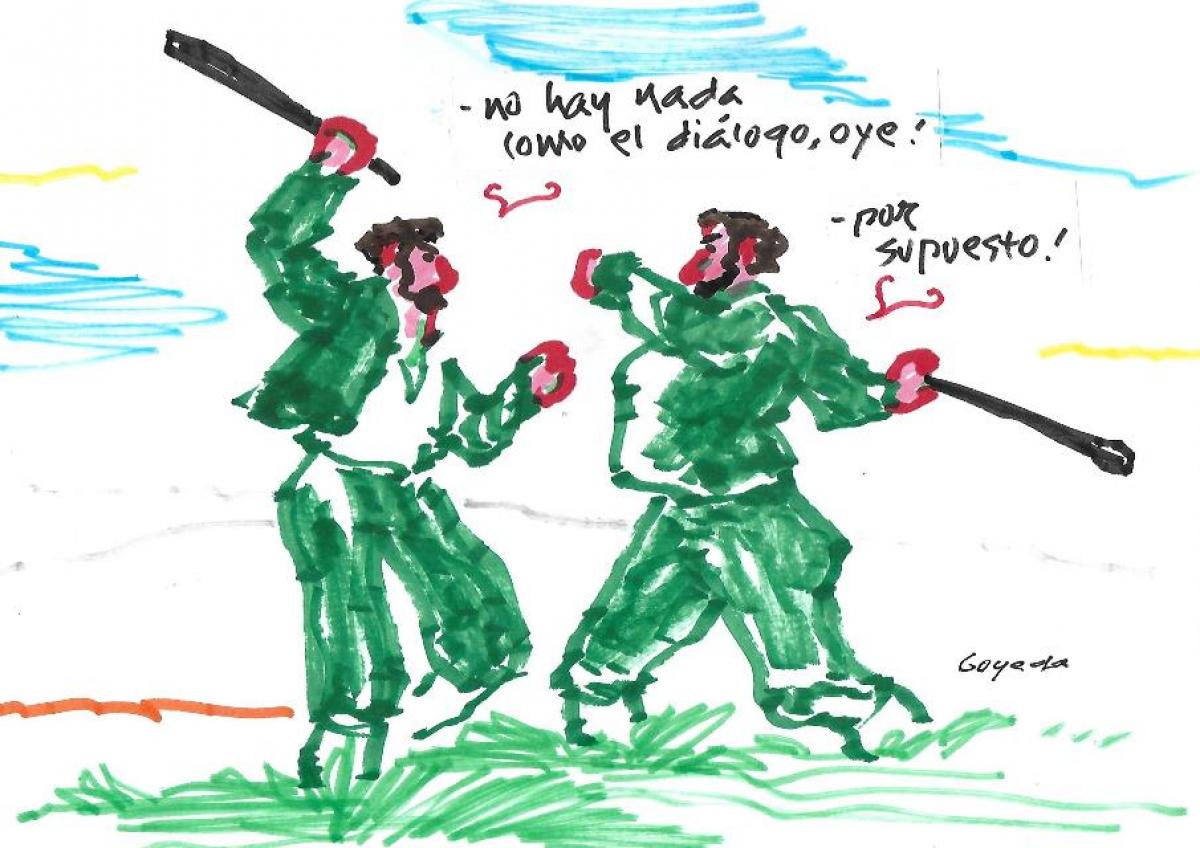 - no hay nada
como el diálogo, oye!
- por
supuesto!
Goyeda